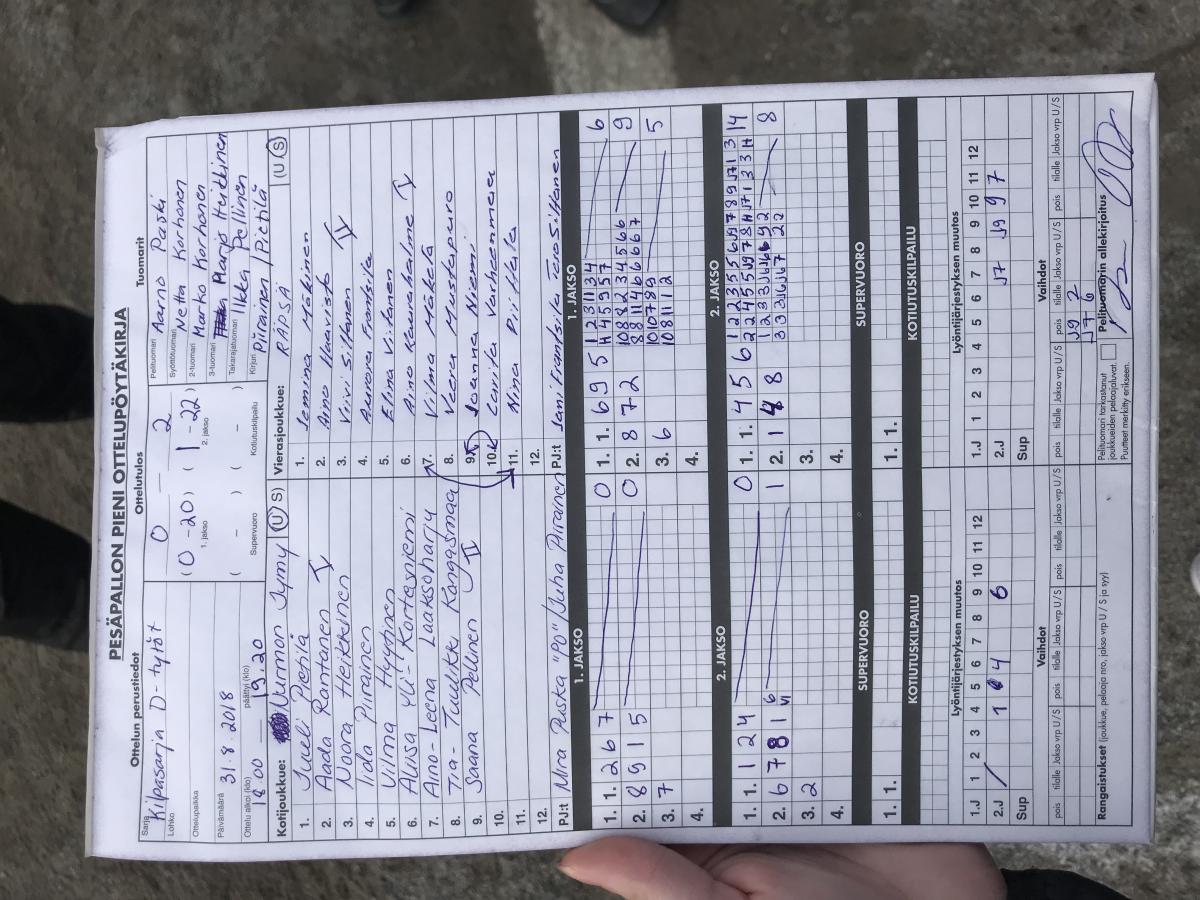 PESÄPALLON PIENI OTTELUPÖYTÄKIRJA
Ottelun perustiedot
Ottelutulos
Tuomarit
Sarja Kilpasarja D-tytöt
Lohko
Ottelupaikka
Päivämäärä 31.8.2018
Ottelu alkoi (klo) 18.00 päättyi (klo) 19.20
0 – 2
(0 - 20) (1 - 22)
1. jakso 2. jakso
( - ) ( - )
Supervuoro Kotiutuskilpailu
Pelituomari Aarno Paski
Syöttötuomari Netta Korhonen
2-tuomari Marko Korhonen
3-tuomari Marjo Heikkinen
Takarajatuomari Ilkka Pellinen
Kirjuri Piirainen / Pietilä
Kotijoukkue: Nurmon Jymy (U S)
1. Juuli Pietilä
2. Aada Rantanen IV
3. Noora Heikkinen
4. Iida Piirainen
5. Vilma Hyytinen
6. Aliisa Yli-Kortesniemi
7. Aino-Leena Laaksoharju
8. Tia-Tuulikki Kangasmaa
9. Saana Pellinen IV
10.
11.
12.
PJ:t Mira Puska "PO" / Juha Piirainen
Vierasjoukkue: RÄPSÄ (U S)
1. Jemina Mäkinen
2. Aino Haavisto
3. Viivi Siltanen IV
4. Aurora Frantsila
5. Elina Viitanen
6. Aino Kaunahalme IV
7. Vilma Mäkelä
8. Veera Mustapuro
9. Joanna Niemi
10. Lunita Vanheenmaa
11. Nina Piittala
12.
PJ:t Jani Frantsila Tero Siltanen
1. JAKSO
1. 1. 2 6 7 0
2. 8 9 1 5 0
3. 7
4.
1. JAKSO
1. 1. 6 9 5 6
2. 8 7 2 9
3. 6 5
4.
2. JAKSO
1. 1. 1 2 4 0
2. 6 7 8 1 6 VI 1
3. 2
4.
2. JAKSO
1. 1. 4 5 6 14
2. 1 4 8 8
3.
4.
SUPERVUORO
1. 1.
SUPERVUORO
1. 1.
KOTIUTUSKILPAILU
KOTIUTUSKILPAILU
Lyöntijärjestyksen muutos
1.J 1 2 3 4 5 6 7 8 9 10 11 12
2.J 1 4 6
Sup
Lyöntijärjestyksen muutos
1.J 1 2 3 4 5 6 7 8 9 10 11 12
2.J J7 J9 9 7
Sup
Vaihdot
pois tilalle Jakso vrp U/S pois tilalle Jakso vrp U/S pois tilalle Jakso vrp U/S
Vaihdot
pois tilalle Jakso vrp U/S pois tilalle Jakso vrp U/S pois tilalle Jakso vrp U/S
J9 2
J7 6
Rangaistukset (joukkue, pelaaja nro, jakso vrp U / S ja syy)
Pelituomari tarkastanut
joukkueiden pelaajaluvat.
Puutteet merkitty erikseen.
Pelituomarin allekirjoitus